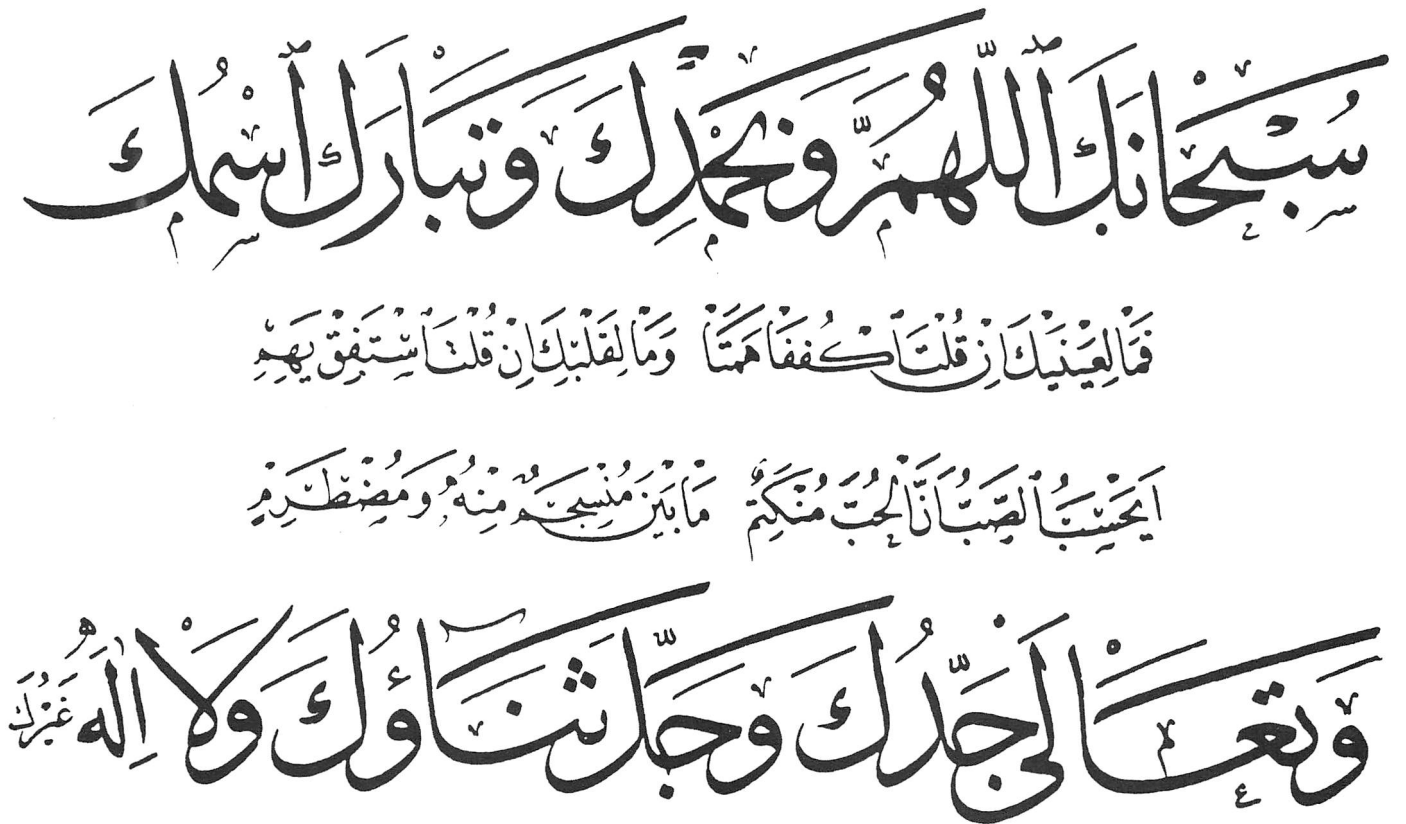 سُبْحَانَكَ ٱللّٰهُمَّ وَبِحَمْدِكَ وَتَبَارَكَ ٱسْمُكَ
فَمَا لِعَيْنَيْكَ اِنْ قُلْتَ اكْفُفَا هَمَتَا وَمَا لِقَلْبِكَ اِنْ قُلْتَ اسْتَفِقْ يَهِمِ
اَيَحْسَبُ الصَّبُّ اَنَّ الْحُبَّ مُنْكَتِمٌ مَا بَيْنَ مُنْسَجِمٍ مِنْهُ وَمُضْطَرِمِ
وَتَعَالٰى جَدُّكَ وَجَلَّ ثَنَاؤُكَ وَلَا اِلٰهَ غَيْرُكَ